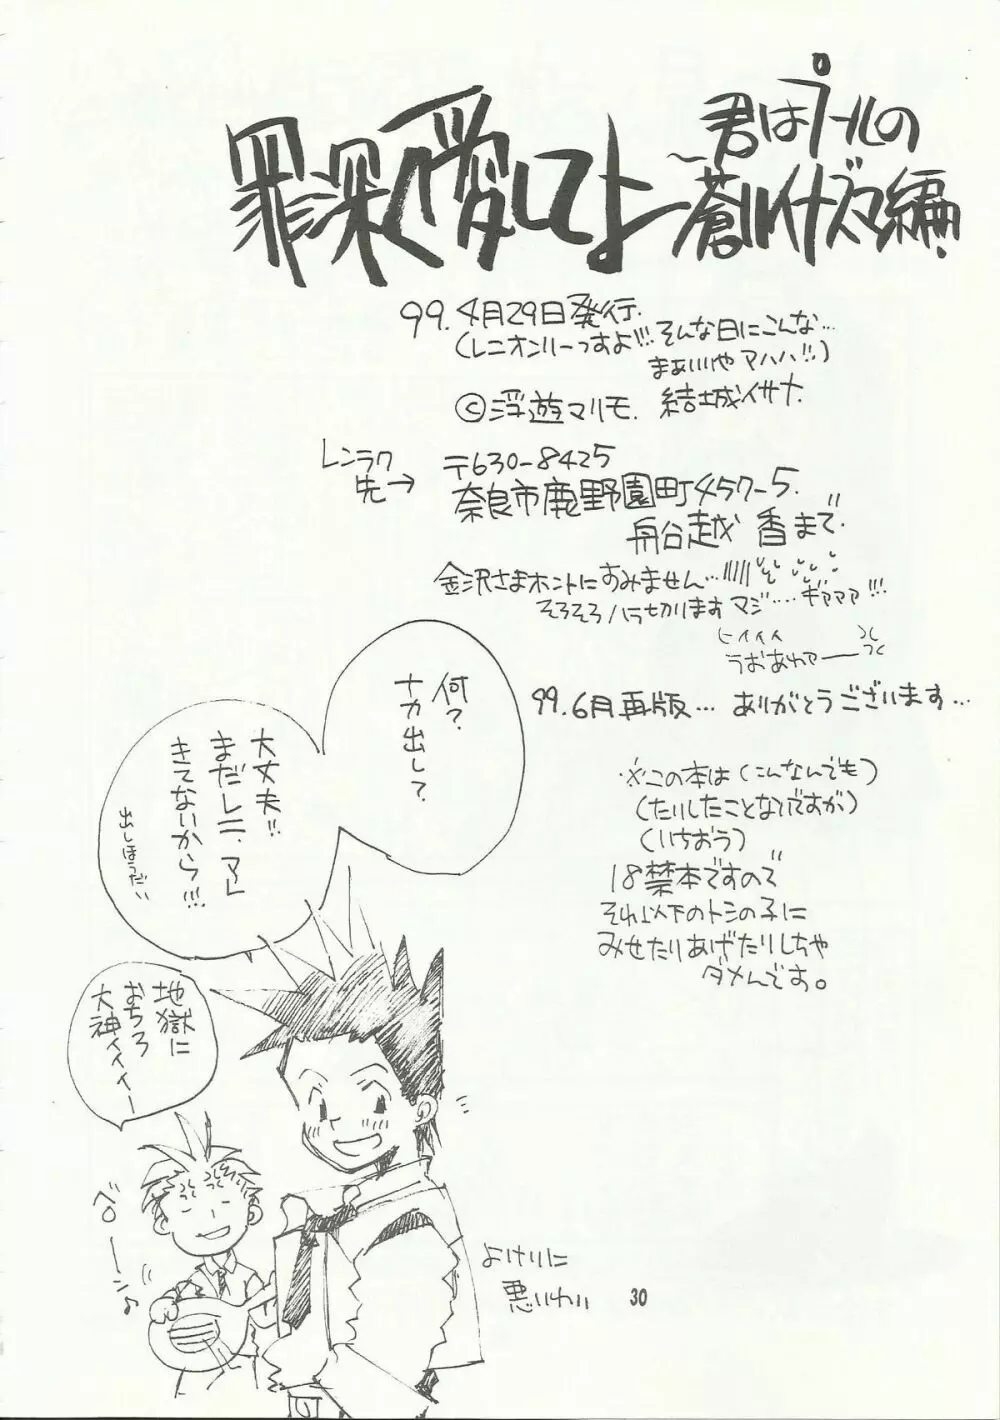 罪深く愛してよ
君はプールの
〜蒼いイナズマ編
99.4月29日発行.
(レニオンリーっすよ!!! そんな日にこんな…
まぁいいや アハハ!!)
©浮遊マリモ. 結城イサナ
レンラク
先→
〒630-8425
奈良市鹿野園町457-5.
舟谷越 香まで"
金沢さまホントにすみません…
そろそろハラ切ります マジ‥‥ ギァァァ!!!
ヒイイイ
うおあわァー
99.6月再版… ありがとうございます…
※この本は(こんなんでも)
(たいしたことないですが)
(いちおう)
18禁本ですので
それ以下のトシの子に
みせたりあげたりしちゃ
ダメんです。
地獄に
おちろ
大神ィィィー
ベローン♪
よけいに
悪いわい
30